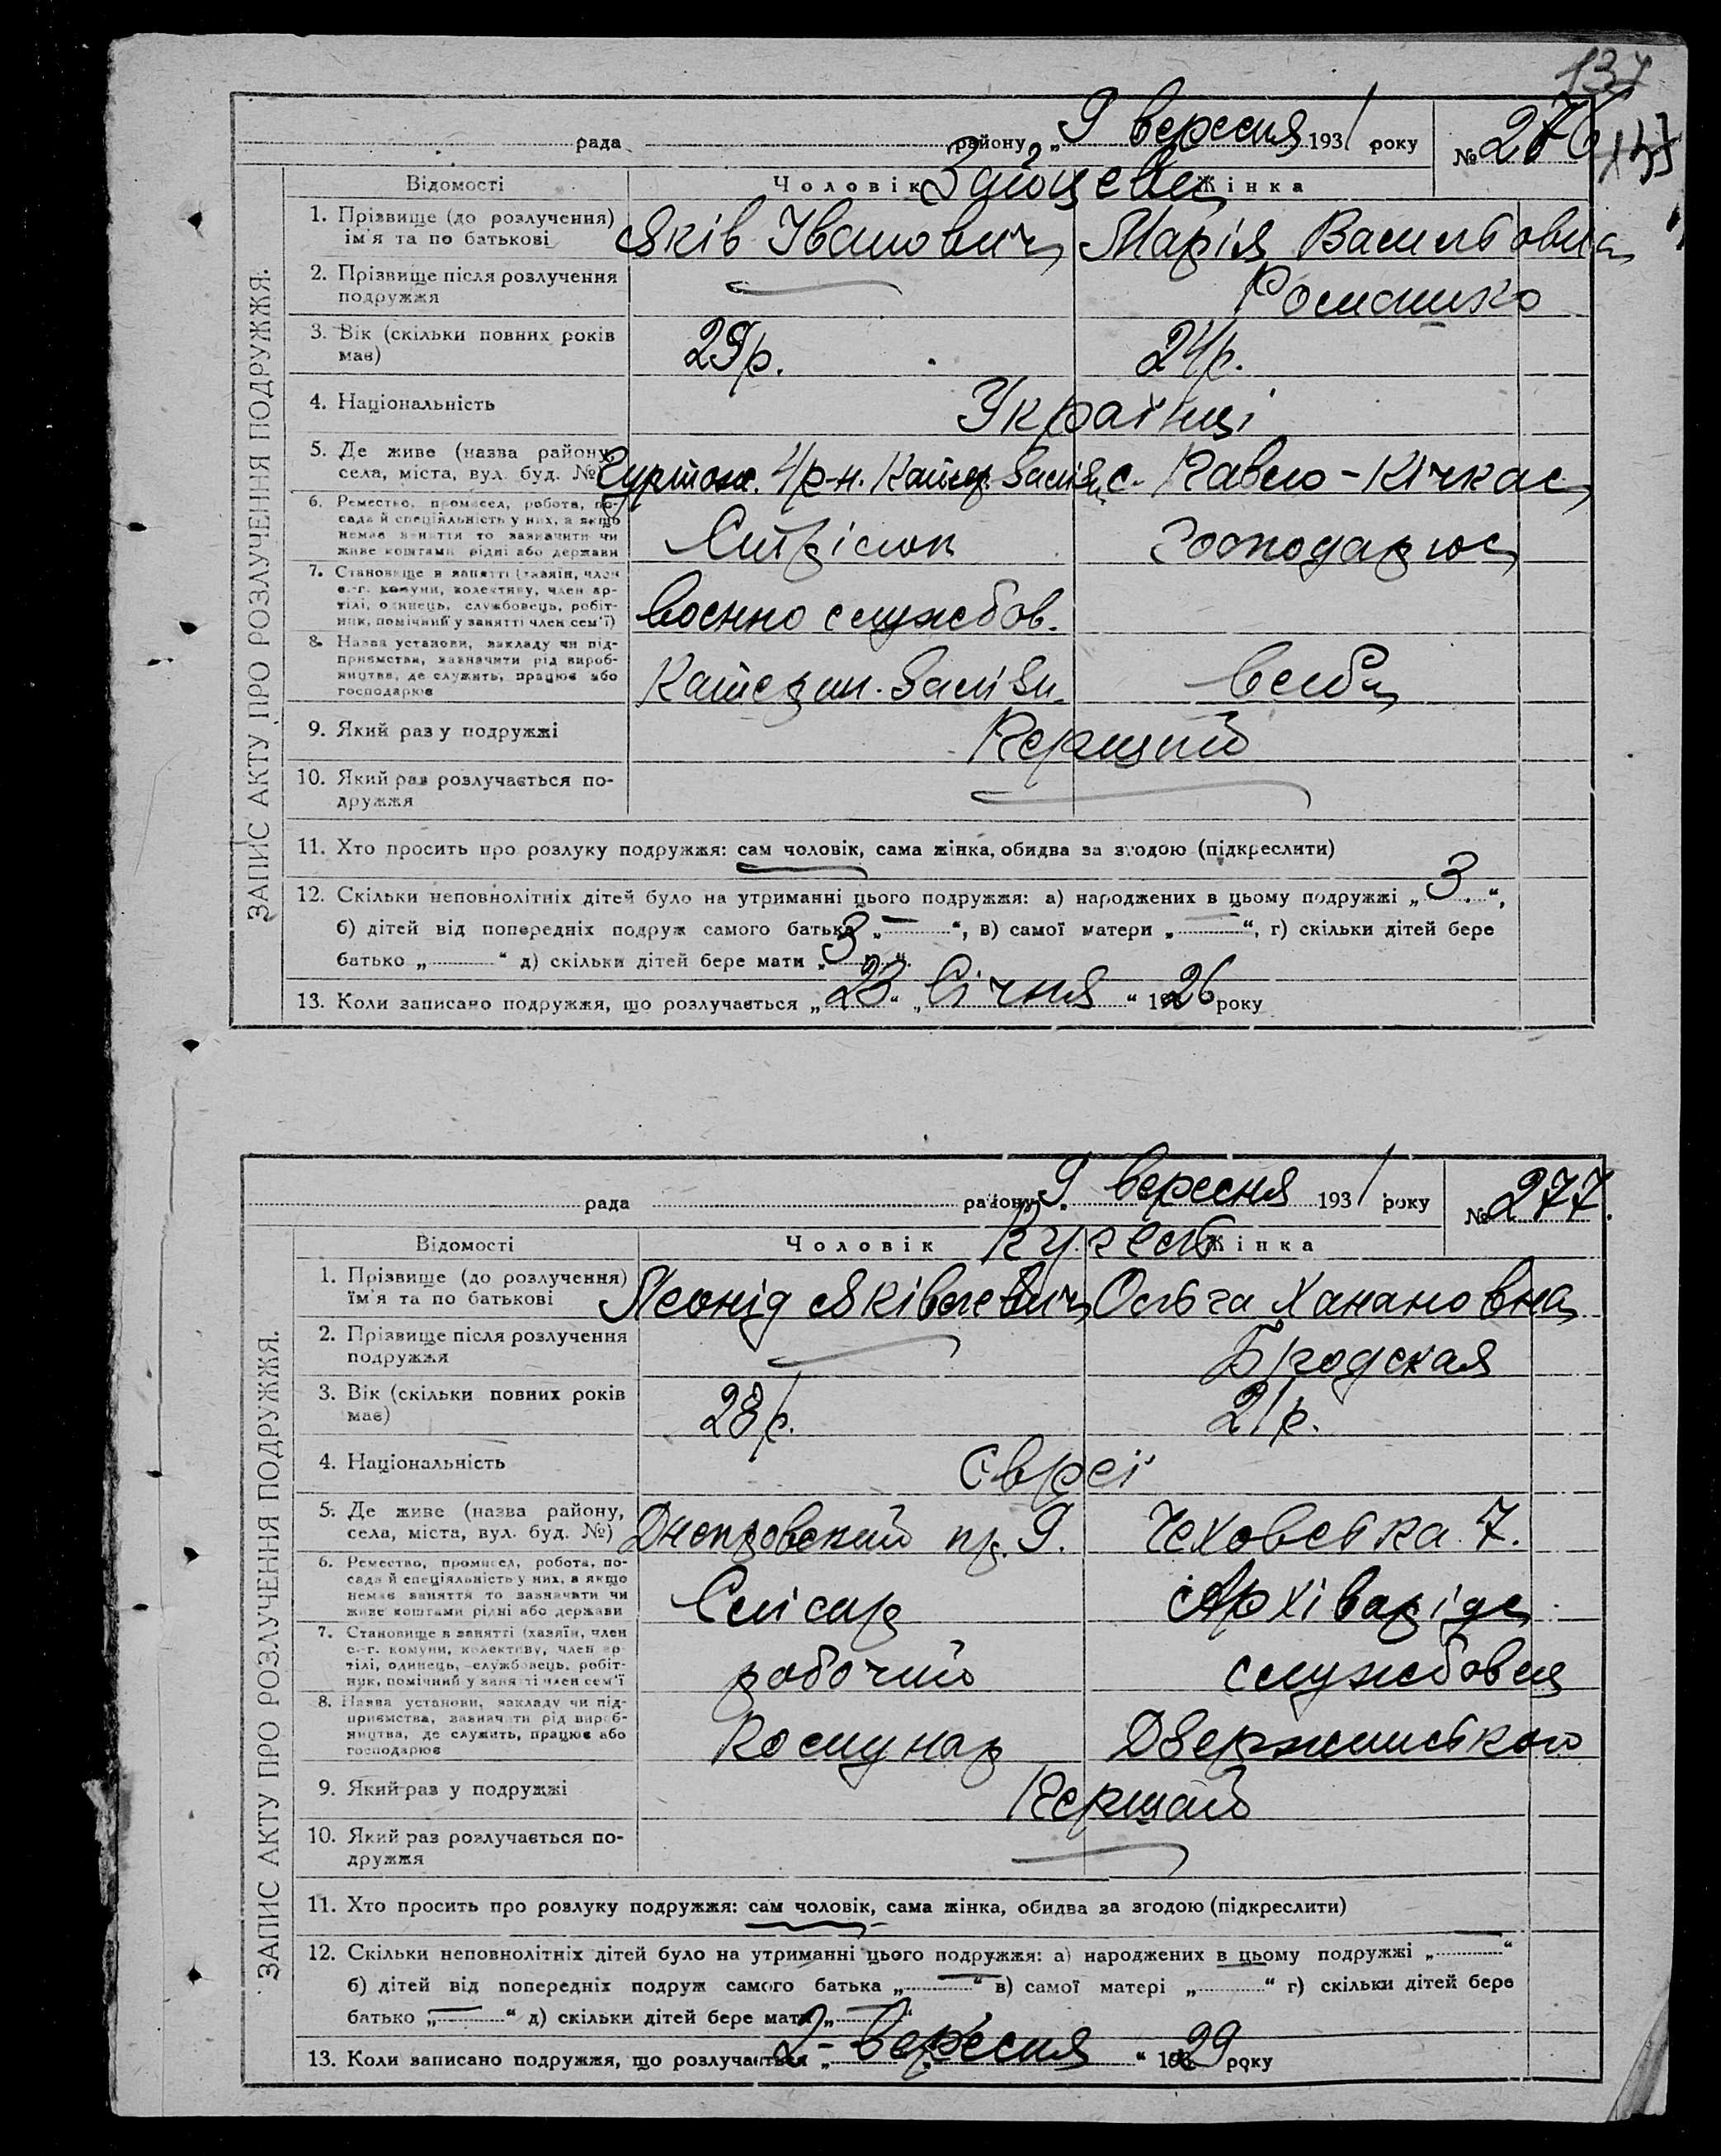 137
147
рада району „9 вересня 1931 року №276
Відомості Чоловік Жінка
Зайцеви
ЗАПИС АКТУ ПРО РОЗЛУЧЕННЯ ПОДРУЖЖЯ.
1. Прізвище (до розлучення) Яків Іванович Марія Васильовна
ім'я та по батькові
2. Прізвище після розлучення Романико
подружжя
3. Вік (скільки повних років 29 р. 24 р.
має)
4. Національність Українці
5. Де живе (назва району, 4 р-н. Катер. Заліз. с. Павло-Кічкас
села, міста, вул. буд. №)
6. Ремество, промисел, робота, по- Стрілок господарює
сада й спеціяльність у них, а якщо
немає заняття то зазначити чи
живе коштами рідні або держави
7. Становище в занятті (хазяїн, член
с.-г. комуни, колективу, член ар- воєнно службов.
тілі, одинець, службовець, робіт-
ник, помічний у занятті член сем'ї)
8. Назва установи, закладу чи під-
приємства, зазначити рід вироб- Катерин. Залізн.
ництва, де служить, працює або
господарює
9. Який раз у подружжі Перший
10. Який раз розлучається по-
дружжя
11. Хто просить про розлуку подружжя: сам чоловік, сама жінка, обидва за згодою (підкреслити)
12. Скільки неповнолітніх дітей було на утриманні цього подружжя: а) народжених в цьому подружжі „ 3 “,
б) дітей від попередніх подруж самого батька „ — “, в) самої матери „ — “, г) скільки дітей бере
батько „ “ д) скільки дітей бере мати „ 3 “.
13. Коли записано подружжя, що розлучається „ 23 “ „ Січня “ 1926 року
рада району „9 вересня 1931 року № 277.
Відомості Чоловік Жінка
ЗАПИС АКТУ ПРО РОЗЛУЧЕННЯ ПОДРУЖЖЯ.
1. Прізвище (до розлучення) Леонід Яківлевич Ольга Ханановна
ім'я та по батькові
2. Прізвище після розлучення Бродская
подружжя
3. Вік (скільки повних років 28 р. 21 р.
має)
4. Національність Євреї
5. Де живе (назва району, Днепровский пр. 9. Чеховська 7.
села, міста, вул. буд. №)
6. Ремество, промисел, робота, по-
сада й спеціяльність у них, а якщо Слісар Архіваріус
немає заняття то зазначити чи
живе коштами рідні або держави
7. Становище в занятті (хазяїн, член
с.-г. комуни, колективу, член ар- робочий службовец
тілі, одинець, службовець, робіт-
ник, помічний у занятті член сем'ї
8. Назва установи, закладу чи під-
приємства, зазначити рід вироб- Комунар Дзержинського
ництва, де служить, працює або
господарює
9. Який раз у подружжі Перший
10. Який раз розлучається по-
дружжя
11. Хто просить про розлуку подружжя: сам чоловік, сама жінка, обидва за згодою (підкреслити)
12. Скільки неповнолітніх дітей було на утриманні цього подружжя: а) народжених в цьому подружжі „ — “
б) дітей від попередніх подруж самого батька „ — “ в) самої матері „ “ г) скільки дітей бере
батько „ — “ д) скільки дітей бере мати „ — “
13. Коли записано подружжя, що розлучається „ 2 - вересня “ 1929 року